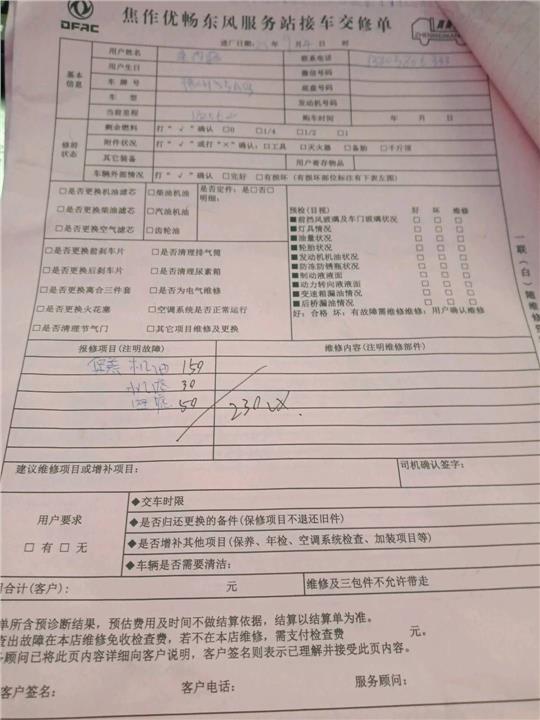 DFAC
焦作优畅东风服务站接车交修单
ZHENGMIAN
进厂日期: 月 日 时
基本信息
用户姓名 联系电话
用户生日 微信号码
车牌号 底盘号码
车型 发动机号码
当前里程 购车时间 年 月 日
修前状态
剩余燃料 打“√”确认 □0 □1/4 □1/2 □1
附件状况 打“√”或打“×”确认:□工具 □灭火器 □备胎 □千斤顶
其它装备 用户寄存物品
车辆外部情况 打“√”确认 □完好 □有损坏(有损坏部位标注有下表左图)
□是否更换机油滤芯 □柴油机油 是否定件:是□否□
明细:
□是否更换柴油滤芯 □汽油机油
□是否更换空气滤芯 □齿轮油
□是否更换前刹车片 □是否清理排气筒
□是否更换后刹车片 □是否清理尿素箱
□是否更换离合三件套 □是否为电气维修
□是否更换火花塞 □空调系统是否正常运行
□是否清理节气门 □其它项目维修及更换
预检(目视) 好 坏 维修
■前挡风玻璃及车门玻璃状况 □ □ □
■灯具情况 □ □ □
■油量状况 □ □ □
■轮胎状况 □ □ □
■发动机机油状况 □ □ □
■防冻防锈瓶状况 □ □ □
■制动液液面 □ □ □
■动力转向液液面 □ □ □
■变速箱漏油情况 □ □ □
■后桥漏油情况 □ □ □
好:合格 坏:有故障需维修维修:用户确认维修
一联(白)随维修
报修项目(注明故障) 维修内容(注明维修部件)
保养 机油 150
机滤 30
50
230
建议维修项目或增补项目: 司机确认签字:
用户要求
□有 □无
◆交车时限
◆是否归还更换的备件(保修项目不退还旧件)
◆是否增补其他项目(保养、年检、空调系统检查、加装项目等)
◆车辆是否需要清洁:
用合计(客户): 元 维修及三包件不允许带走
单所含预诊断结果,预估费用及时间不做结算依据,结算以结算单为准。
查出故障在本店维修免收检查费,若不在本店维修,需支付检查费 元。
务顾问已将此页内容详细向客户说明,客户签名则表示已理解并接受此页内容。
客户签名: 客户电话: 服务顾问: